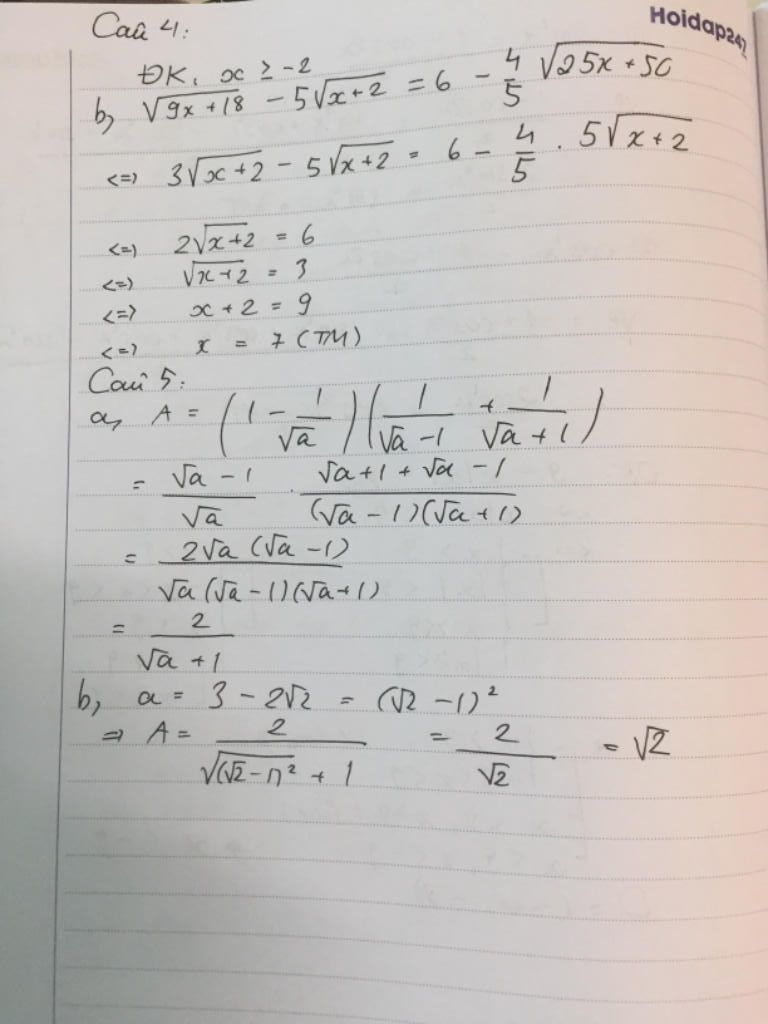 Hoidap247
Câu 4:
ĐK: x ≥ -2
b, √(9x+18) - 5√(x+2) = 6 - 4/5 √(25x+50)
<=> 3√(x+2) - 5√(x+2) = 6 - 4/5 . 5√(x+2)
<=> 2√(x+2) = 6
<=> √(x+2) = 3
<=> x + 2 = 9
<=> x = 7 (TM)
Câu 5:
a, A = (1 - 1/√a)(1/(√a - 1) + 1/(√a + 1))
= (√a - 1)/√a . (√a + 1 + √a - 1)/((√a - 1)(√a + 1))
= 2√a (√a - 1)/(√a (√a - 1)(√a + 1))
= 2/(√a + 1)
b, a = 3 - 2√2 = (√2 - 1)²
=> A = 2/(√((√2 - 1)²) + 1) = 2/√2 = √2